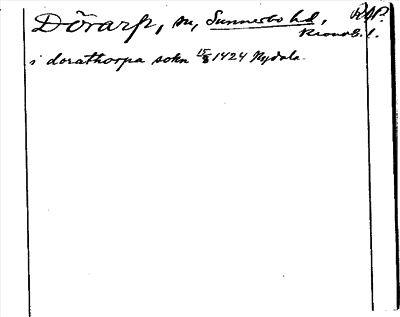 Dörarp, sn, Sunnerbo hd, RAP.
Kronob. l.
i dorathorpa sokn 15/8 1424 Nydala.